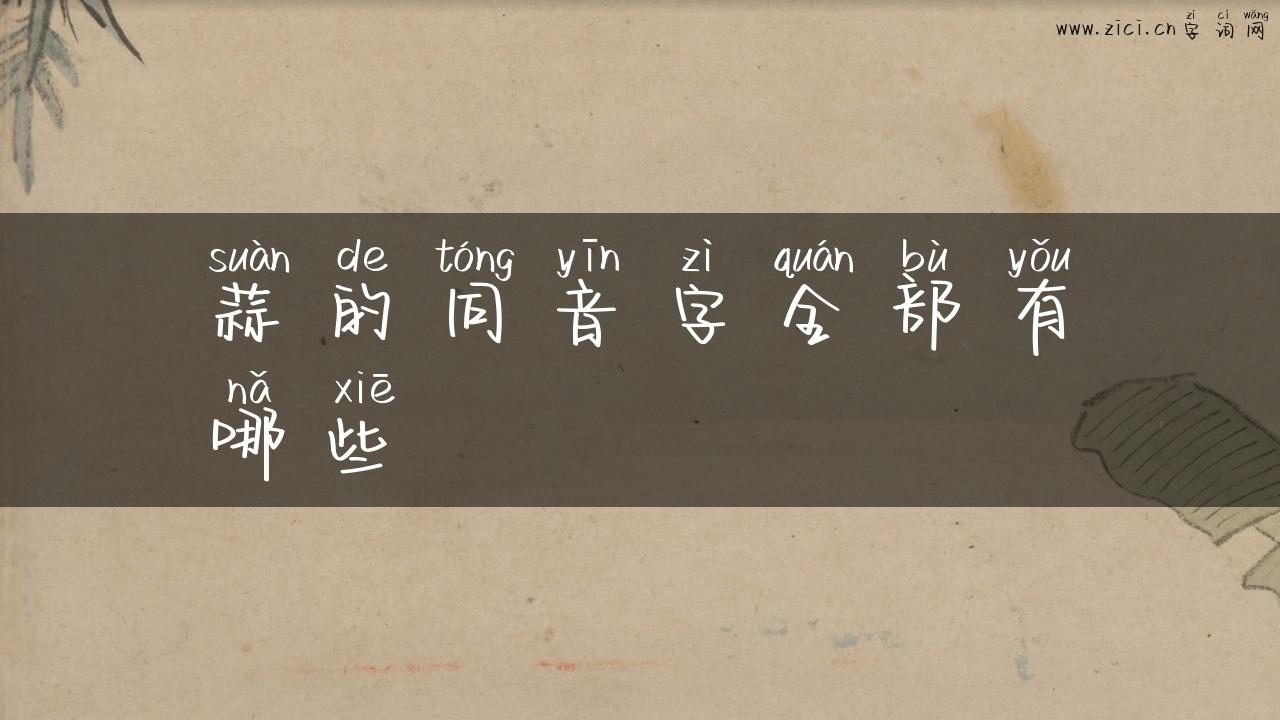 zì cí wǎng
www.zici.cn 字 词 网
suàn de tóng yīn zì quán bù yǒu
蒜 的 同 音 字 全 部 有
nǎ xiē
哪 些